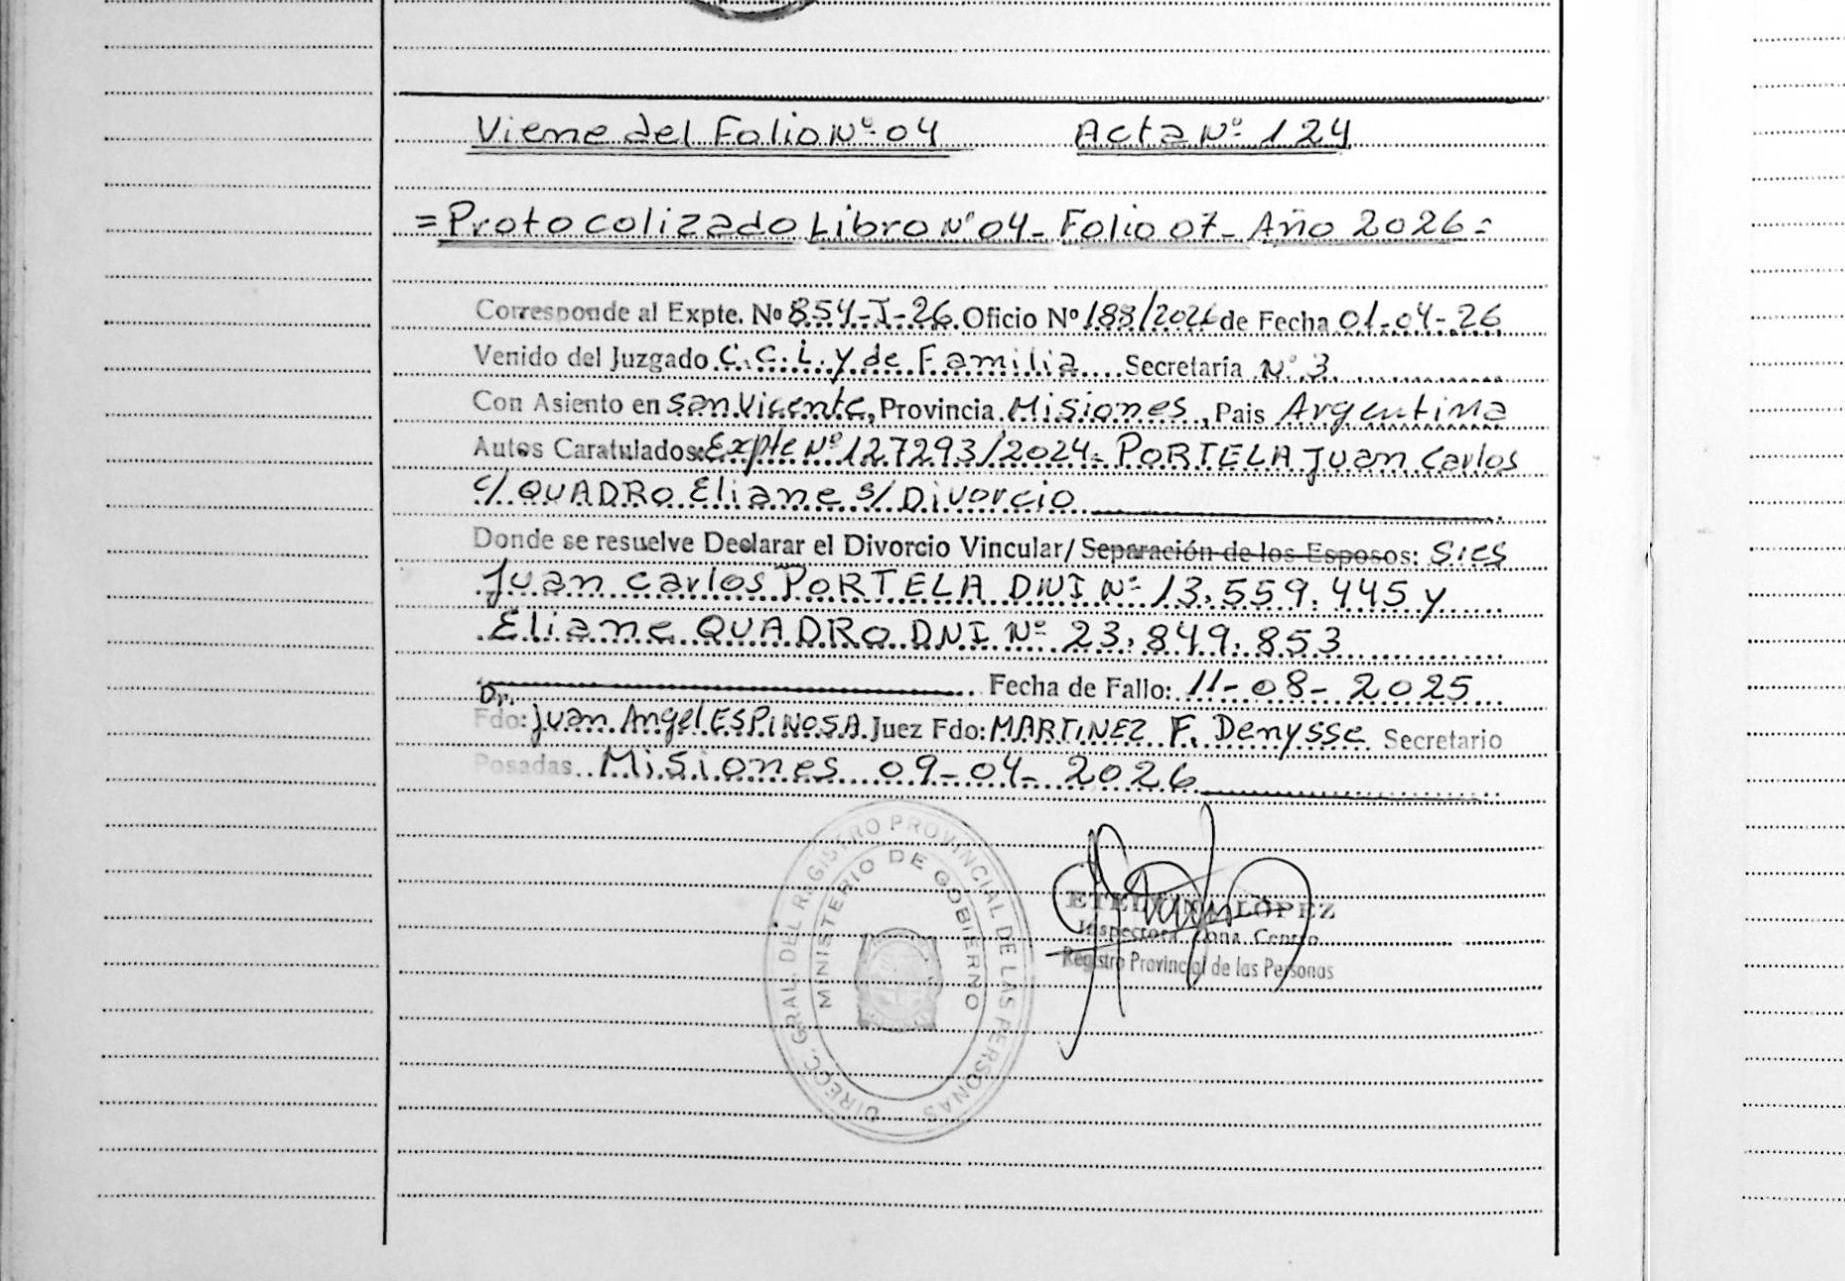 Viene del Folio Nº 04 Acta Nº 124
= Protocolizado Libro Nº 04 - Folio 07 - Año 2026 =
Corresponde al Expte. Nº 854-I-26. Oficio Nº 188/2026 de Fecha 01-04-26
Venido del Juzgado C.C.L. y de Familia.... Secretaría Nº 3.
Con Asiento en San Vicente, Provincia Misiones, Pais Argentina
Autos Caratulados: Expte Nº 127293/2024 - PORTELA Juan Carlos
c/ QUADRO Eliane s/ Divorcio
Donde se resuelve Declarar el Divorcio Vincular/ Separación de los Esposos: Sres
Juan Carlos PORTELA DNI Nº 13.559.445 y
Eliane QUADRO DNI Nº 23.849.853
Fecha de Fallo: 11-08-2025
Dr.
Fdo: Juan Angel ESPINOSA Juez Fdo: MARTINEZ F. Denysse Secretario
Posadas.. Misiones 09-04-2026
DIRECC. GRAL. DEL REGISTRO PROVINCIAL DE LAS PERSONAS
MINISTERIO DE GOBIERNO
LÓPEZ
Inspectora Zona Centro
Registro Provincial de las Personas